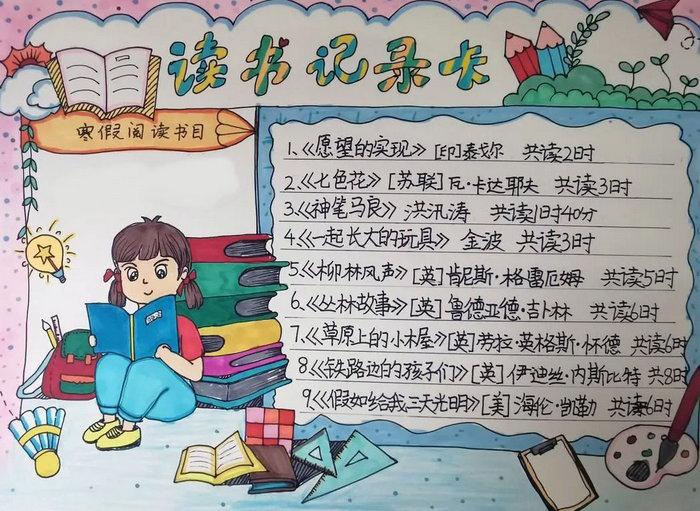 读书记录卡
寒假阅读书目
1、《愿望的实现》[印]泰戈尔 共读2时
2、《七色花》[苏联]瓦·卡达耶夫 共读3时
3、《神笔马良》洪汛涛 共读1时40分
4、《一起长大的玩具》金波 共读3时
5、《柳林风声》[英]肯尼斯·格雷厄姆 共读5时
6、《丛林故事》[英]鲁德亚德·吉卜林 共读6时
7、《草原上的小木屋》[英]劳拉·英格斯·怀德 共读6时
8、《铁路边的孩子们》[英]伊迪丝·内斯比特 共8时
9、《假如给我三天光明》[美]海伦·凯勒 共读6时